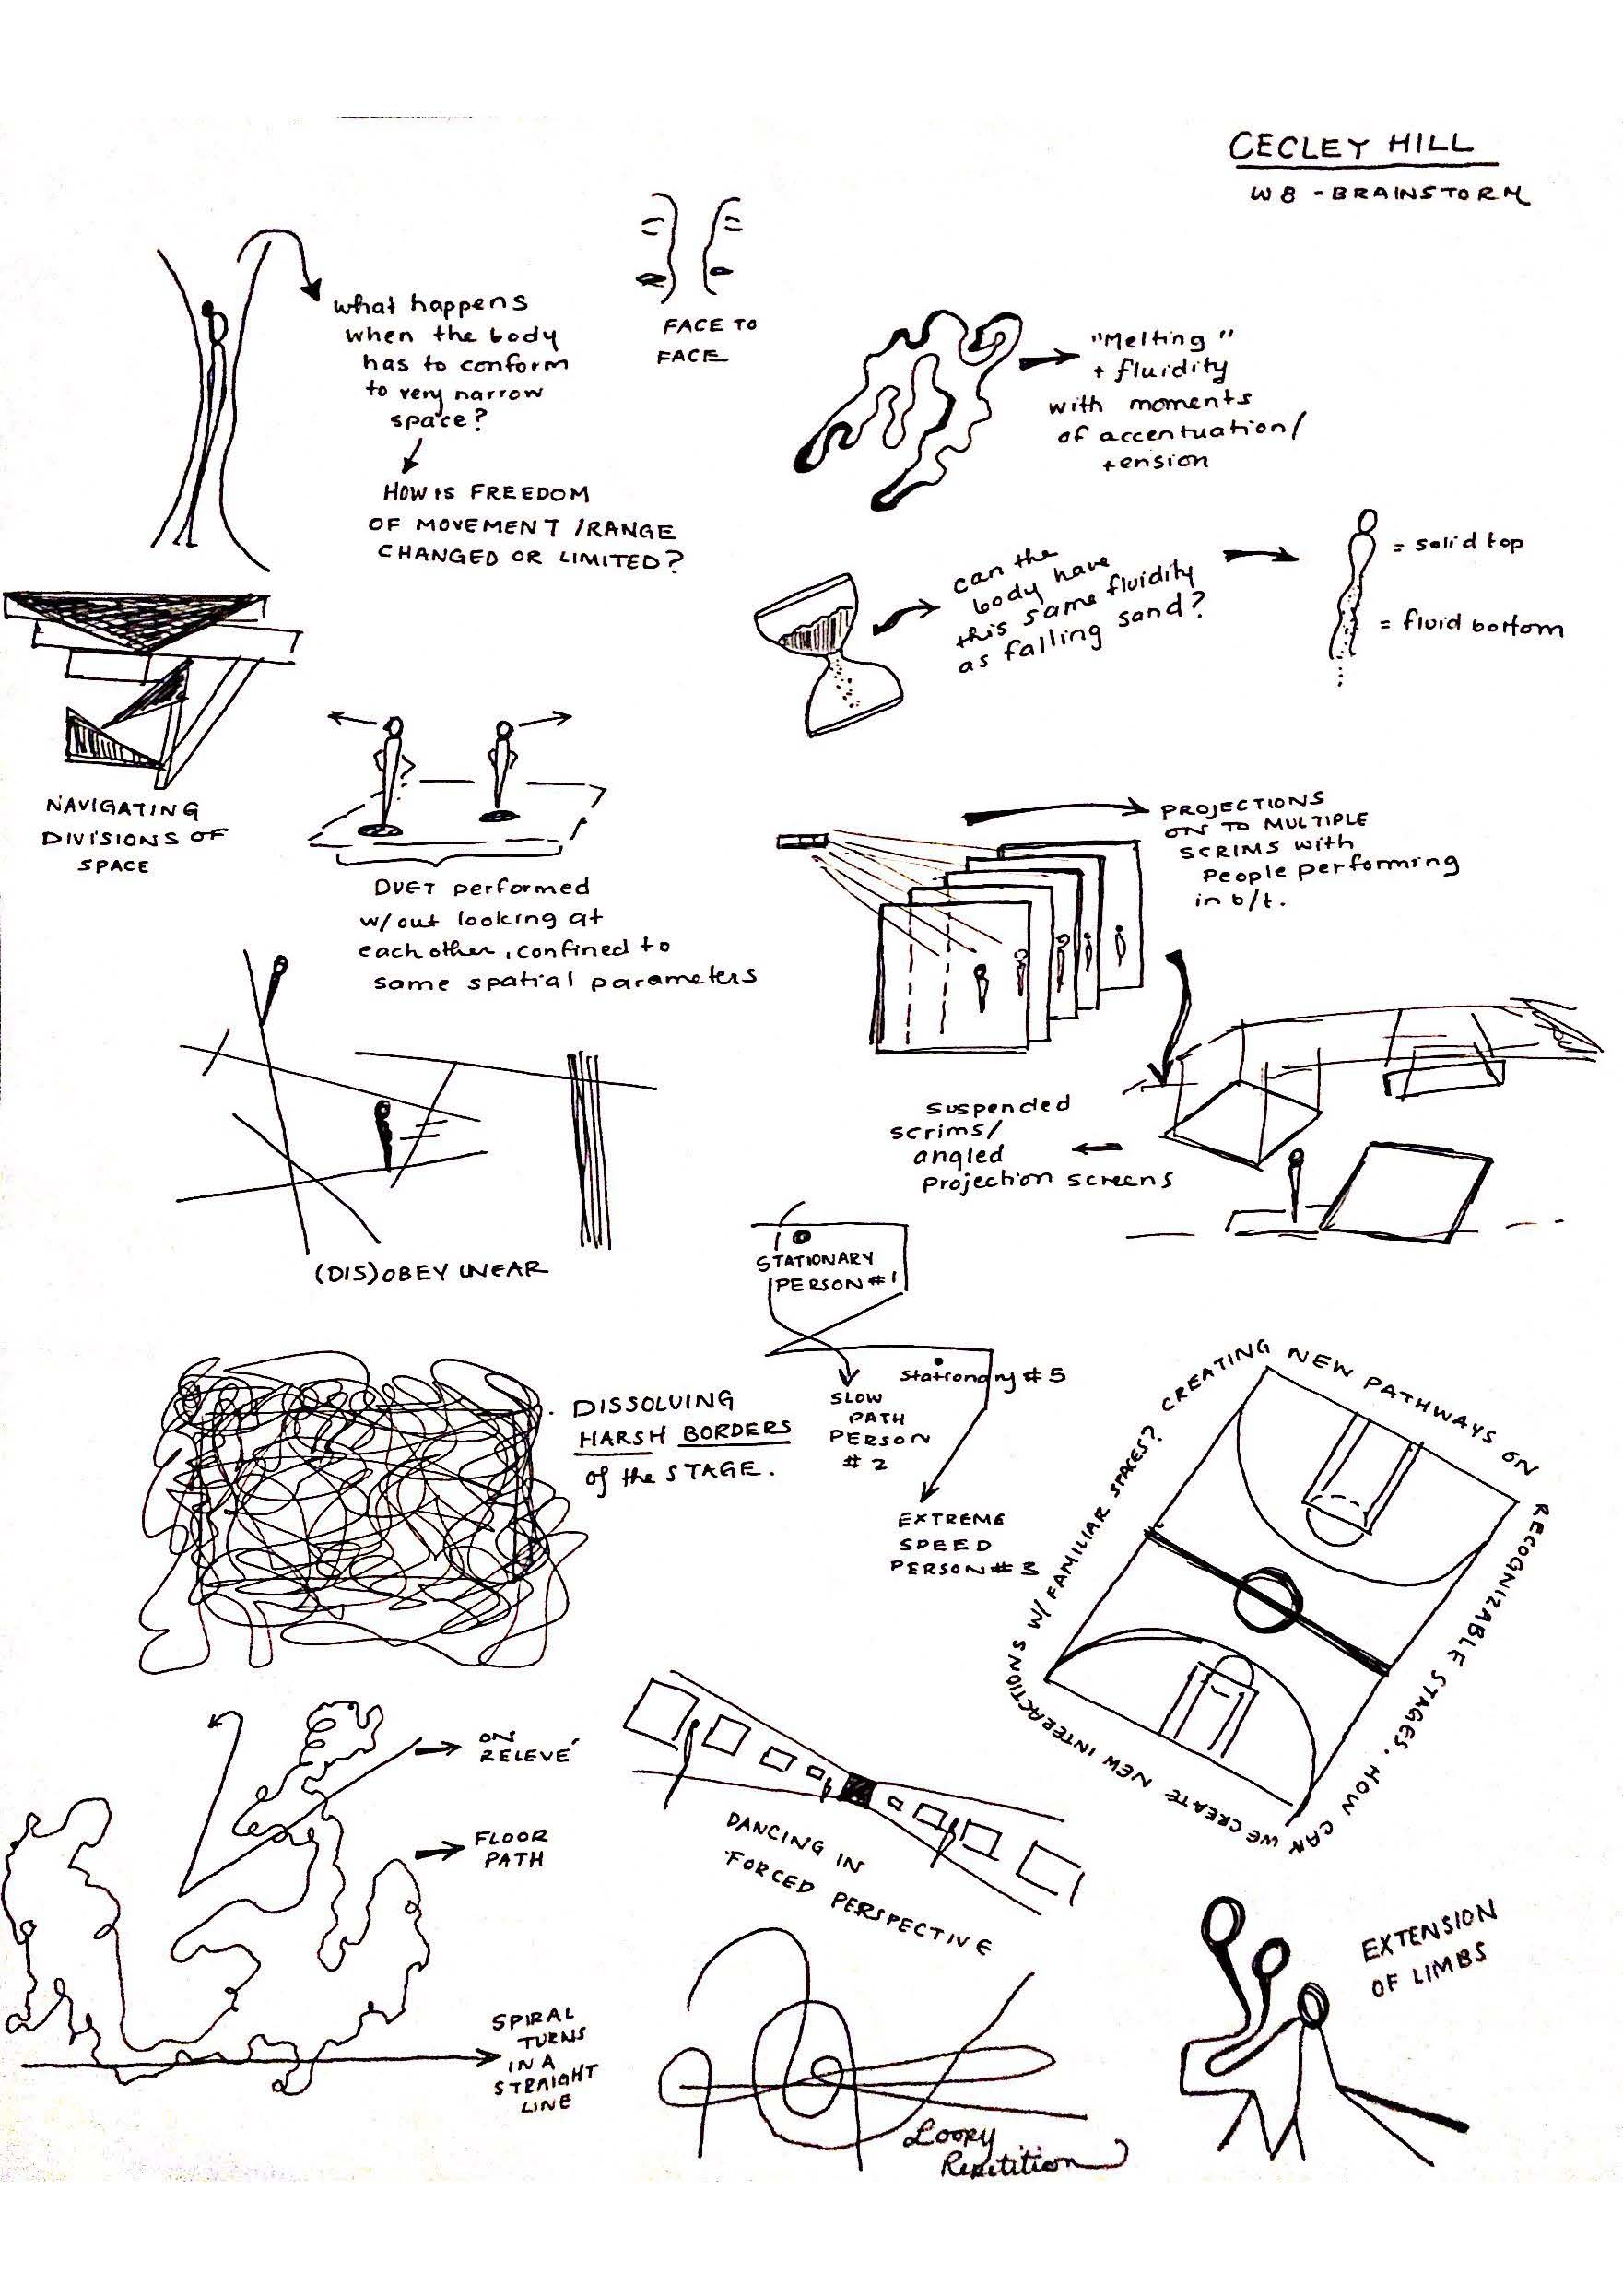 CECLEY HILL
W8 - BRAINSTORM
what happens
when the body
has to conform
to very narrow
space?
HOW IS FREEDOM
OF MOVEMENT / RANGE
CHANGED OR LIMITED?
FACE TO
FACE
"Melting"
+ fluidity
with moments
of accentuation/
tension
can the
body have
this same fluidity
as falling sand?
= solid top
= fluid bottom
NAVIGATING
DIVISIONS OF
SPACE
DUET performed
w/out looking at
each other, confined to
same spatial parameters
PROJECTIONS
ON TO MULTIPLE
SCRIMS with
People performing
in b/t.
suspended
scrims/
angled
projection screens
(DIS)OBEY LINEAR
STATIONARY
PERSON #1
Stationary #5
SLOW
PATH
PERSON
#2
EXTREME
SPEED
PERSON #3
DISSOLVING
HARSH BORDERS
of the STAGE.
CREATING NEW PATHWAYS ON
RECOGNIZABLE STAGES. HOW CAN
WE CREATE NEW INTERACTIONS
W/ FAMILIAR SPACES?
ON
RELEVÉ
FLOOR
PATH
SPIRAL
TURNS
IN A
STRAIGHT
LINE
DANCING IN
FORCED PERSPECTIVE
Loopy
Repetition
EXTENSION
OF LIMBS